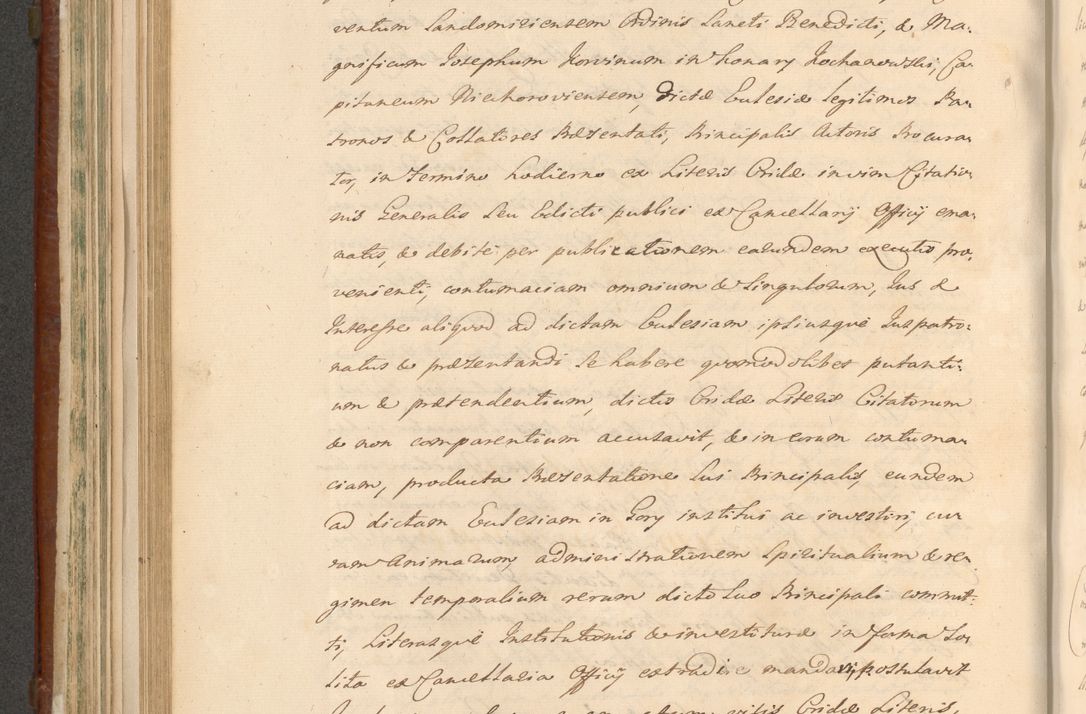 ventum Sandomiriensem Ordinis Sancti Benedicti, & Ma-
gnificum Josephum Korvinum in Konary Kochanowski, Ca-
pitaneum Niechoroviensem, dictæ Ecclesiæ legitimos Pa-
tronos & Collatores Præsentati, Principalis Actoris Procura-
tor, in Termino hodierno ex Literis Cridæ in vim Citatio-
nis Generalis seu Edicti publici ex Cancellarij Officij ema-
natis, & debitè per publicationem earundem executis pro-
venienti, contumaciam omnium & Singulorum, Jus &
Interesse aliquod ad dictam Ecclesiam ipsiusque Juspatro-
natus & præsentandi se habere quomodolibet putanti-
um & prætendentium, dictis Cridæ Literis Citatorum
& non comparentium accusavit, & in eorum contuma-
ciam, producta Præsentatione sui Principalis, eundem
ad dictam Ecclesiam in Gory institui ac investiri, cu-
ram Animarum, administrationem Spiritualium & re-
gimen temporalium rerum dicto suo Principali commit-
ti, Literasque Institutionis & investituræ in forma so-
lita ex Cancellaria Officij extradi e mandari, postulavit